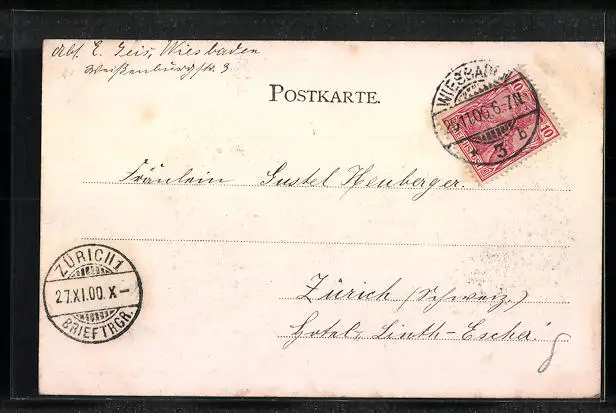 Abs. E. Geis, Wiesbaden
Weißenburgstr. 3
POSTKARTE.
WIESBADEN
11.00. 6-7N.
* 3 b
10
10
Fräulein Gustel Heuberger.
ZÜRICH 1
27.XI.00. X-
BRIEFTRGR.
Zürich (Schweiz.)
Hotel, Linth-Escher